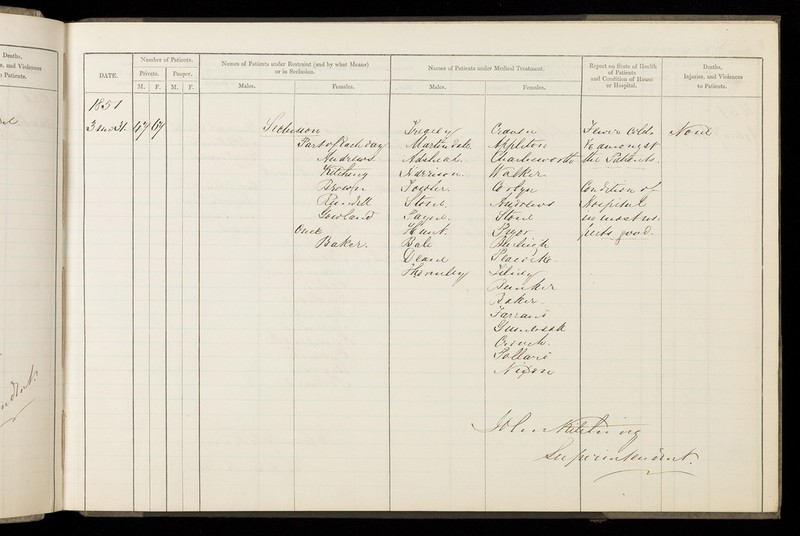 Deaths,
Injuries, and Violences
to Patients.
DATE.
Number of Patients.
Private.
Pauper.
M.
F.
M.
F.
Names of Patients under Restraint (and by what Means)
or in Seclusion.
Males.
Females.
Names of Patients under Medical Treatment.
Males.
Females.
Report on State of Health
of Patients
and Condition of House
or Hospital.
Deaths,
Injuries, and Violences
to Patients.
1851
3 mo 31.
47
67
Seclusion
Part of each day
Andrews
Kitching
Brown
Rundell
Gowland
Once
Baker.
Martindale
Adshead.
Harrison.
Fowler.
Stone.
Payne.
Hunt.
Bale
Deane
Thornley
Craven
Appleton
Charlesworth
Walker
Andrews
Stone
Pryor
Burleigh
Peacock
Bunker
Baker
Farrand
Crouch.
Pollard
Nixon
Fewer Colds
amongst
the Patients.
Condition of
Hospital
in most res-
pects good.
None
John Kitching
Superintendent.